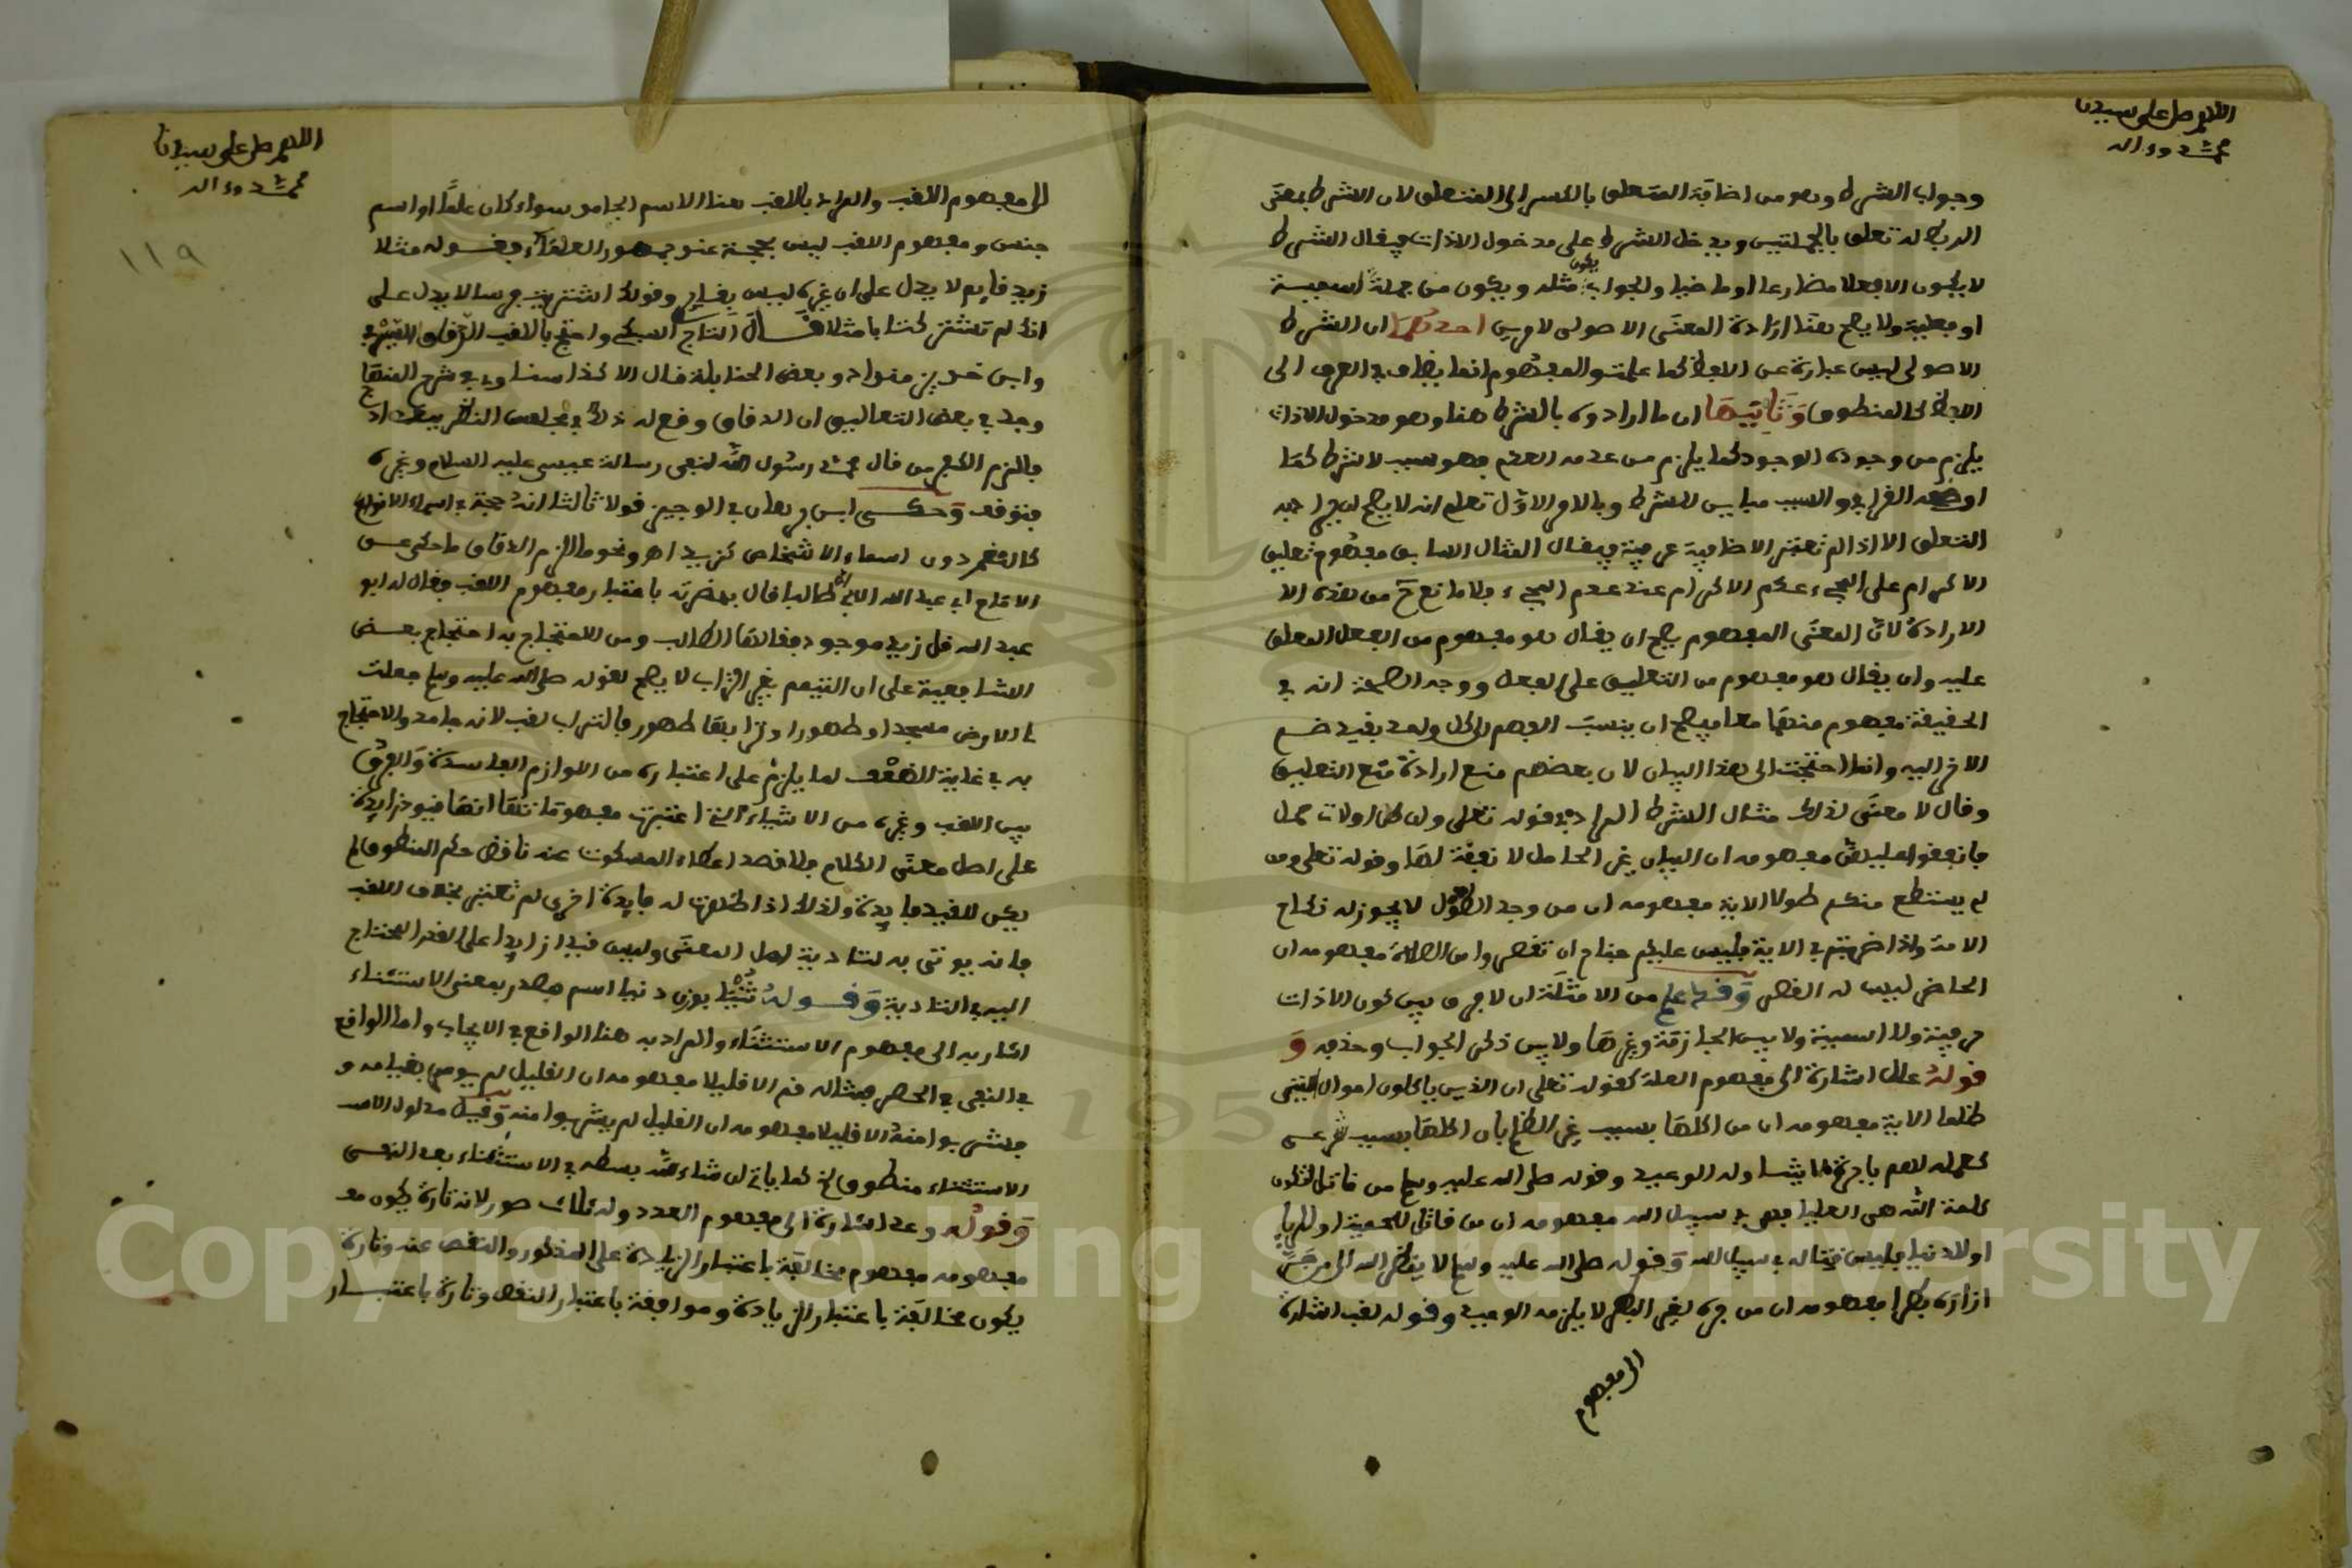 اللهم صل على سيدنا
محمد وءاله
وجواب الشرط وهو من اضافة المتعلق بالكسر الى المتعلق لان الشرط بمعنى
الربط له تعلق بالجملتين ويدخل الشرط على مدخول الاذات فيقال الشرط
لا يكون الا فعلا مضارعا او ماضيا والجواب يكون مثله ويكون من جملة اسمية
او فعلية ولا يصح هنا ارادة المعنى الاصولي لامرين احدهما ان الشرط
الاصولي ليس عبارة عن اللفظ كما علمت والمفهوم انما يضاف في العرف الى
اللفظ المنطوق وثانيها ان ما ارادوه بالشرط هنا وهو مدخول الاذات
يلزم من وجوده الوجود كما يلزم من عدمه العدم فهو سبب لا شرط كما
اوضحه القرافي والسبب مباين للشرط وبالامر الاول تعلم انه لا يصح
التعلق الا اذا لم تعتبر الاضافية عرفية فيقال المثال السابق مفهوم تعليق
الاكرام على المجيء عدم الاكرام عند عدم المجيء فلا مانع ح من هذه الا
الارادة لان المعنى المفهوم يصح ان يقال هو مفهوم من الفعل المعلق
عليه وان يقال هو مفهوم من التعليق على الفعل ووجه الصحة انه في
الحقيقة مفهوم منهما معا فيصح ان ينسب الفهم لكل واحد بقيد ضم
الاخر اليه وانما احتجت الى هذا البيان لان بعضهم منع ارادة منع التعليق
وقال لا معنى لذلك مثال الشرط المراد فيه قوله تعلى وان كن اولات حمل
فانفقوا عليهن مفهومه ان البيان غير الحامل لا نفقة لها وقوله تعلى ومن
لم يستطع منكم طولا الاية مفهومه ان من وجد الطول لا يجوز له نكاح
الامة واذا ضربتم في الاية فليس عليكم جناح ان تقصروا من الصلاة مفهومه ان
الحاضر ليس له القصر وقد علم من الامثلة ان لا فرق بين كون الاذات
حرفية ولا اسمية ولا بين الجازمة وغيرها ولا بين ذكر الجواب وحذفه و
قوله علل اشارة الى مفهوم العلة كقوله تعلى ان الذين ياكلون اموال اليتمى
ظلما الاية مفهومه ان من اكلها بسبب غير الظلم بان اكلها بسبب شرعي
كعمله لهم باجرة لا يتناوله الوعيد وقوله صلى الله عليه وسلم من قاتل لتكون
كلمة الله هي العليا فهو في سبيل الله مفهومه ان من قاتل للحمية او للرياء
او للدنيا فليس قتاله في سبيل الله وقوله صلى الله عليه وسلم لا ينظر الله الى من جر
ازاره بطرا مفهومه ان من جره لغير البطر لا يلزمه الوعيد وقوله لقب اشارة
الى مفهوم
اللهم صل على سيدنا
محمد وءاله
١١٩
الى مفهوم اللقب والمراد باللقب هنا الاسم الجامد سواء كان علما او اسم
جنس ومفهوم اللقب ليس بحجة عند جمهور العلماء فقوله مثلا
زيد قايم لا يدل على ان غيره ليس بقايم وقولك اشتريت فرسا لا يدل على
انك لم تشتر كتابا مثلا قال التاج السبكي واحتج باللقب الدقاق والصيرفي
وابن خويز منداد وبعض الحنابلة قال الاكذا سنا وفي شرح المنهاج
وجد في بعض التعاليق ان الدقاق وقع له ذلك في مجلس النظر ببغداد
فالزم الكفر من قال محمد رسول الله لنفي رسالة عيسى عليه السلام وغيره
فتوقف وحكى ابن برهان في الوجيز قولا ثالثا انه حجة في اسماء الانواع
كالغنم دون اسماء الاشخاص كزيد اهـ ونحو ما الزم الدقاق ما حكي عن
الامام ابي عبد الله الابلي ان طالبا قال بحضرته باعتبار مفهوم اللقب فقال له ابو
عبد الله قل زيد موجود فقالها الطالب ومن الاحتجاج به احتجاج بعض
الشافعية على ان التيمم بغير التراب لا يصح لقوله صلى الله عليه وسلم جعلت
لي الارض مسجدا وطهورا وترابها طهور فالتراب لقب لانه جامد والاحتجاج
به في غاية الضعف لما يلزم على اعتباره من اللوازم الفاسدة والفرق
بين اللقب وغيره من الاشياء التي اعتبرت مفهوماتها انها قيود زايدة
على اصل معنى الكلام فلا قصد اعطاء المسكوت عنه نافض حكم المنطوق لم
يكن للقيد فايدة ولذلك اذا ظهرت له فايدة اخرى لم تعتبر بخلاف اللقب
فانه يوتى به لتادية اصل المعنى وليس قيدا زايدا على القدر المحتاج
اليه في التادية وقوله ثنيا بوزن دنيا اسم مصدر بمعنى الاستثناء
اشار به الى مفهوم الاستثناء والمراد به هنا الواقع في الايجاب واما الواقع
في النفي في الحصر مثاله قم الا قليلا مفهومه ان القليل لم يومر بقيامه و
فشربوا منه الا قليلا مفهومه ان القليل لم يشربوا منه وقيل مدلول
الاستثناء منطوق لا كما ياتي ان شاء الله بسطه في الاستثناء بعد النفي
وقوله وعد اشارة الى مفهوم العدد وله ثلاث صور لانه تارة يكون
مفهومه مفهوم مخالفة باعتبار الزيادة على المذكور والنقص عنه وتارة
يكون مخالفة باعتبار الزيادة وموافقة باعتبار النقص وتارة باعتبار
Copyright © King Saud University
1957